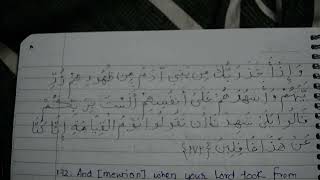 وَإِذْ أَخَذَ رَبُّكَ مِن بَنِي آدَمَ مِن ظُهُورِهِمْ ذُرِّ
يَّتَهُمْ وَأَشْهَدَهُمْ عَلَى أَنفُسِهِمْ أَلَسْتُ بِرَبِّكُمْ
قَالُوا بَلَى شَهِدْنَا أَن تَقُولُوا يَوْمَ الْقِيَامَةِ إِنَّا كُنَّا
عَنْ هَذَا غَافِلِينَ {١٧٢}
172. And [mention] when your Lord took from